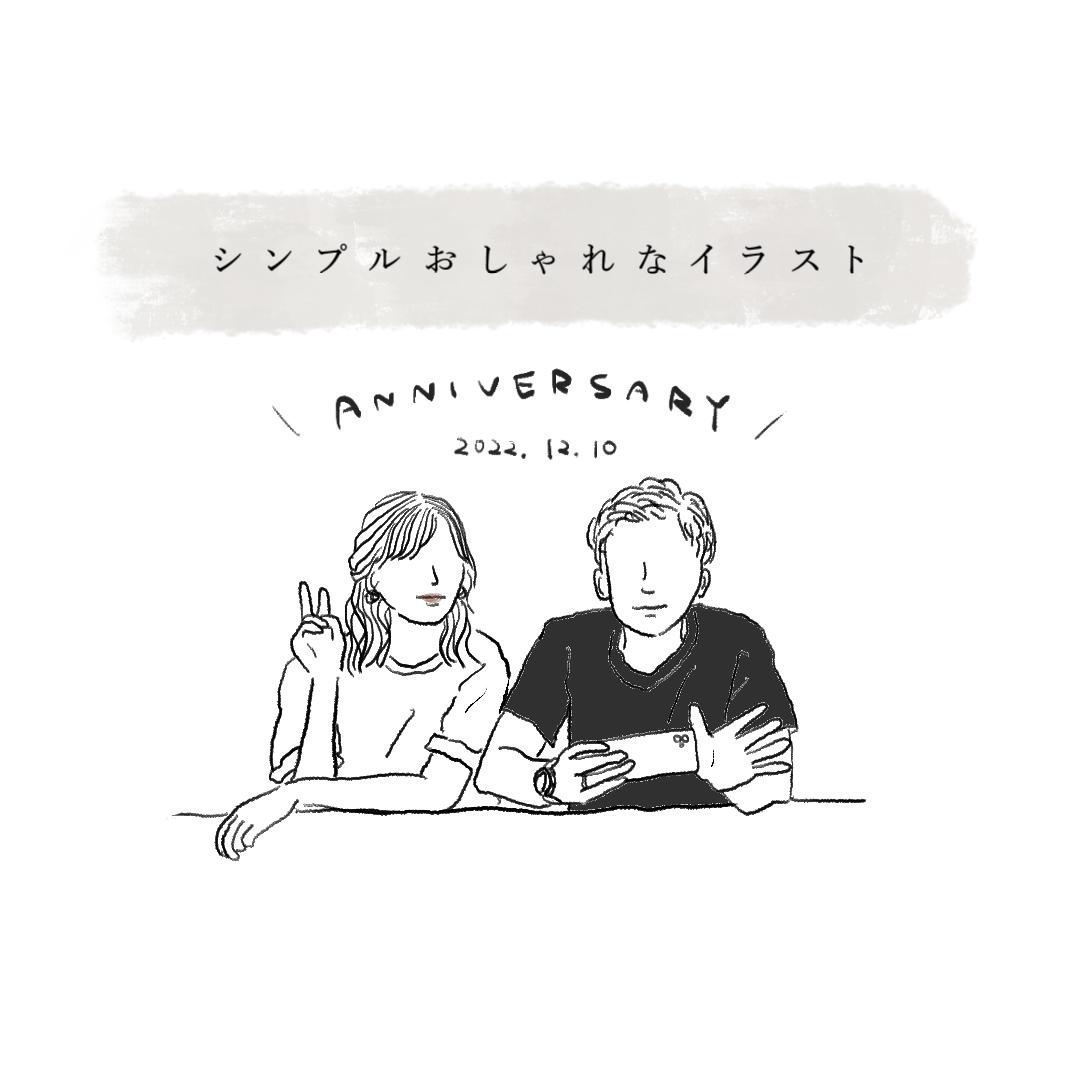 シンプルおしゃれなイラスト
ANNIVERSARY
2022.12.10